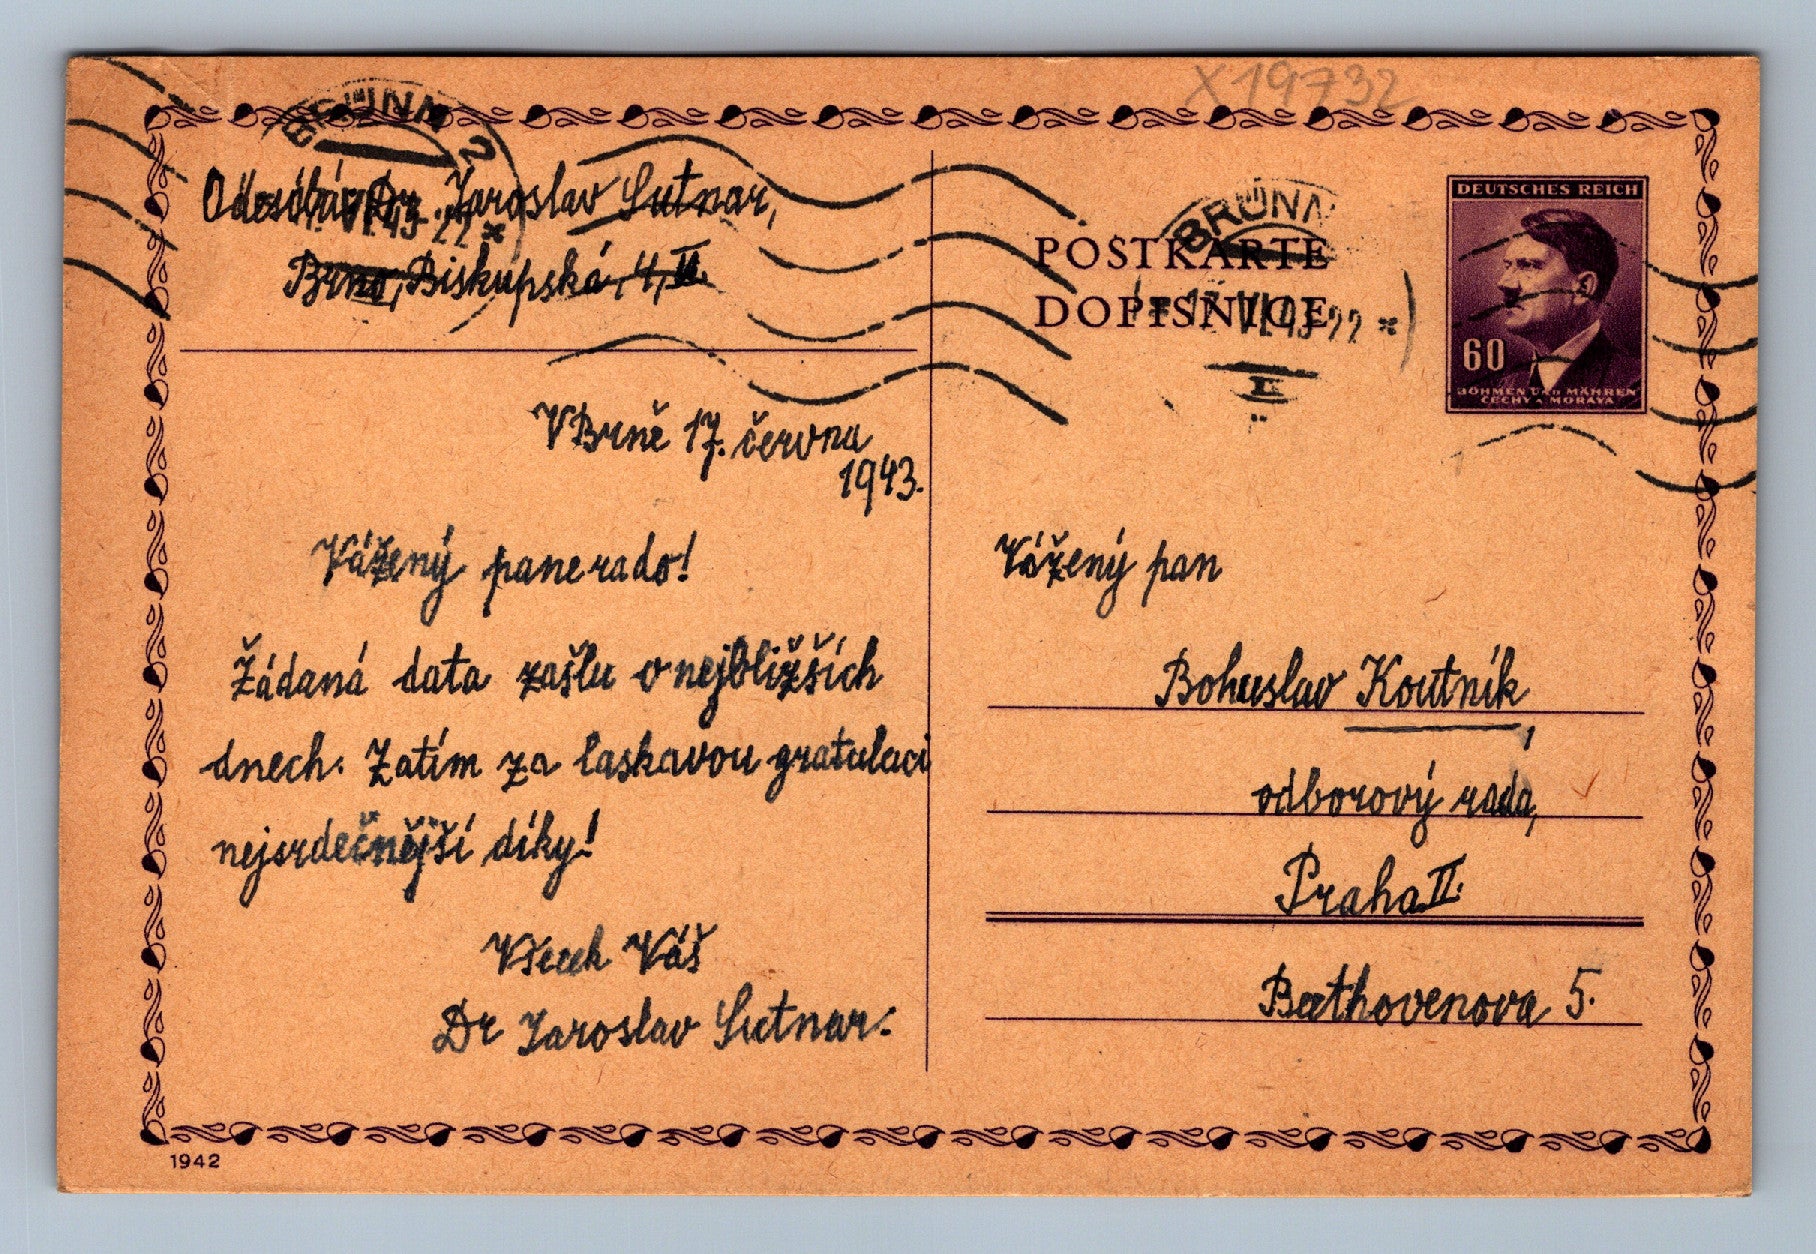 X19732
BRÜNN 2
Odesílá: Dr. Jaroslav Sutnar,
Brno, Biskupská, 4, II.
V Brně 17. června
1943.
Vážený pane rado!
Žádaná data zašlu v nejbližších
dnech. Zatím za laskavou gratulaci
nejsrdečnější díky!
Všecek Váš
Dr Jaroslav Sutnar.
1942
BRÜNN
17. VI. 43-22
POSTKARTE
DOPISNICE
DEUTSCHES REICH
60
BÖHMEN UND MÄHREN
ČECHY A MORAVA
Vážený pan
Bohuslav Koutník,
odborový rada,
Praha II.
Beethovenova 5.